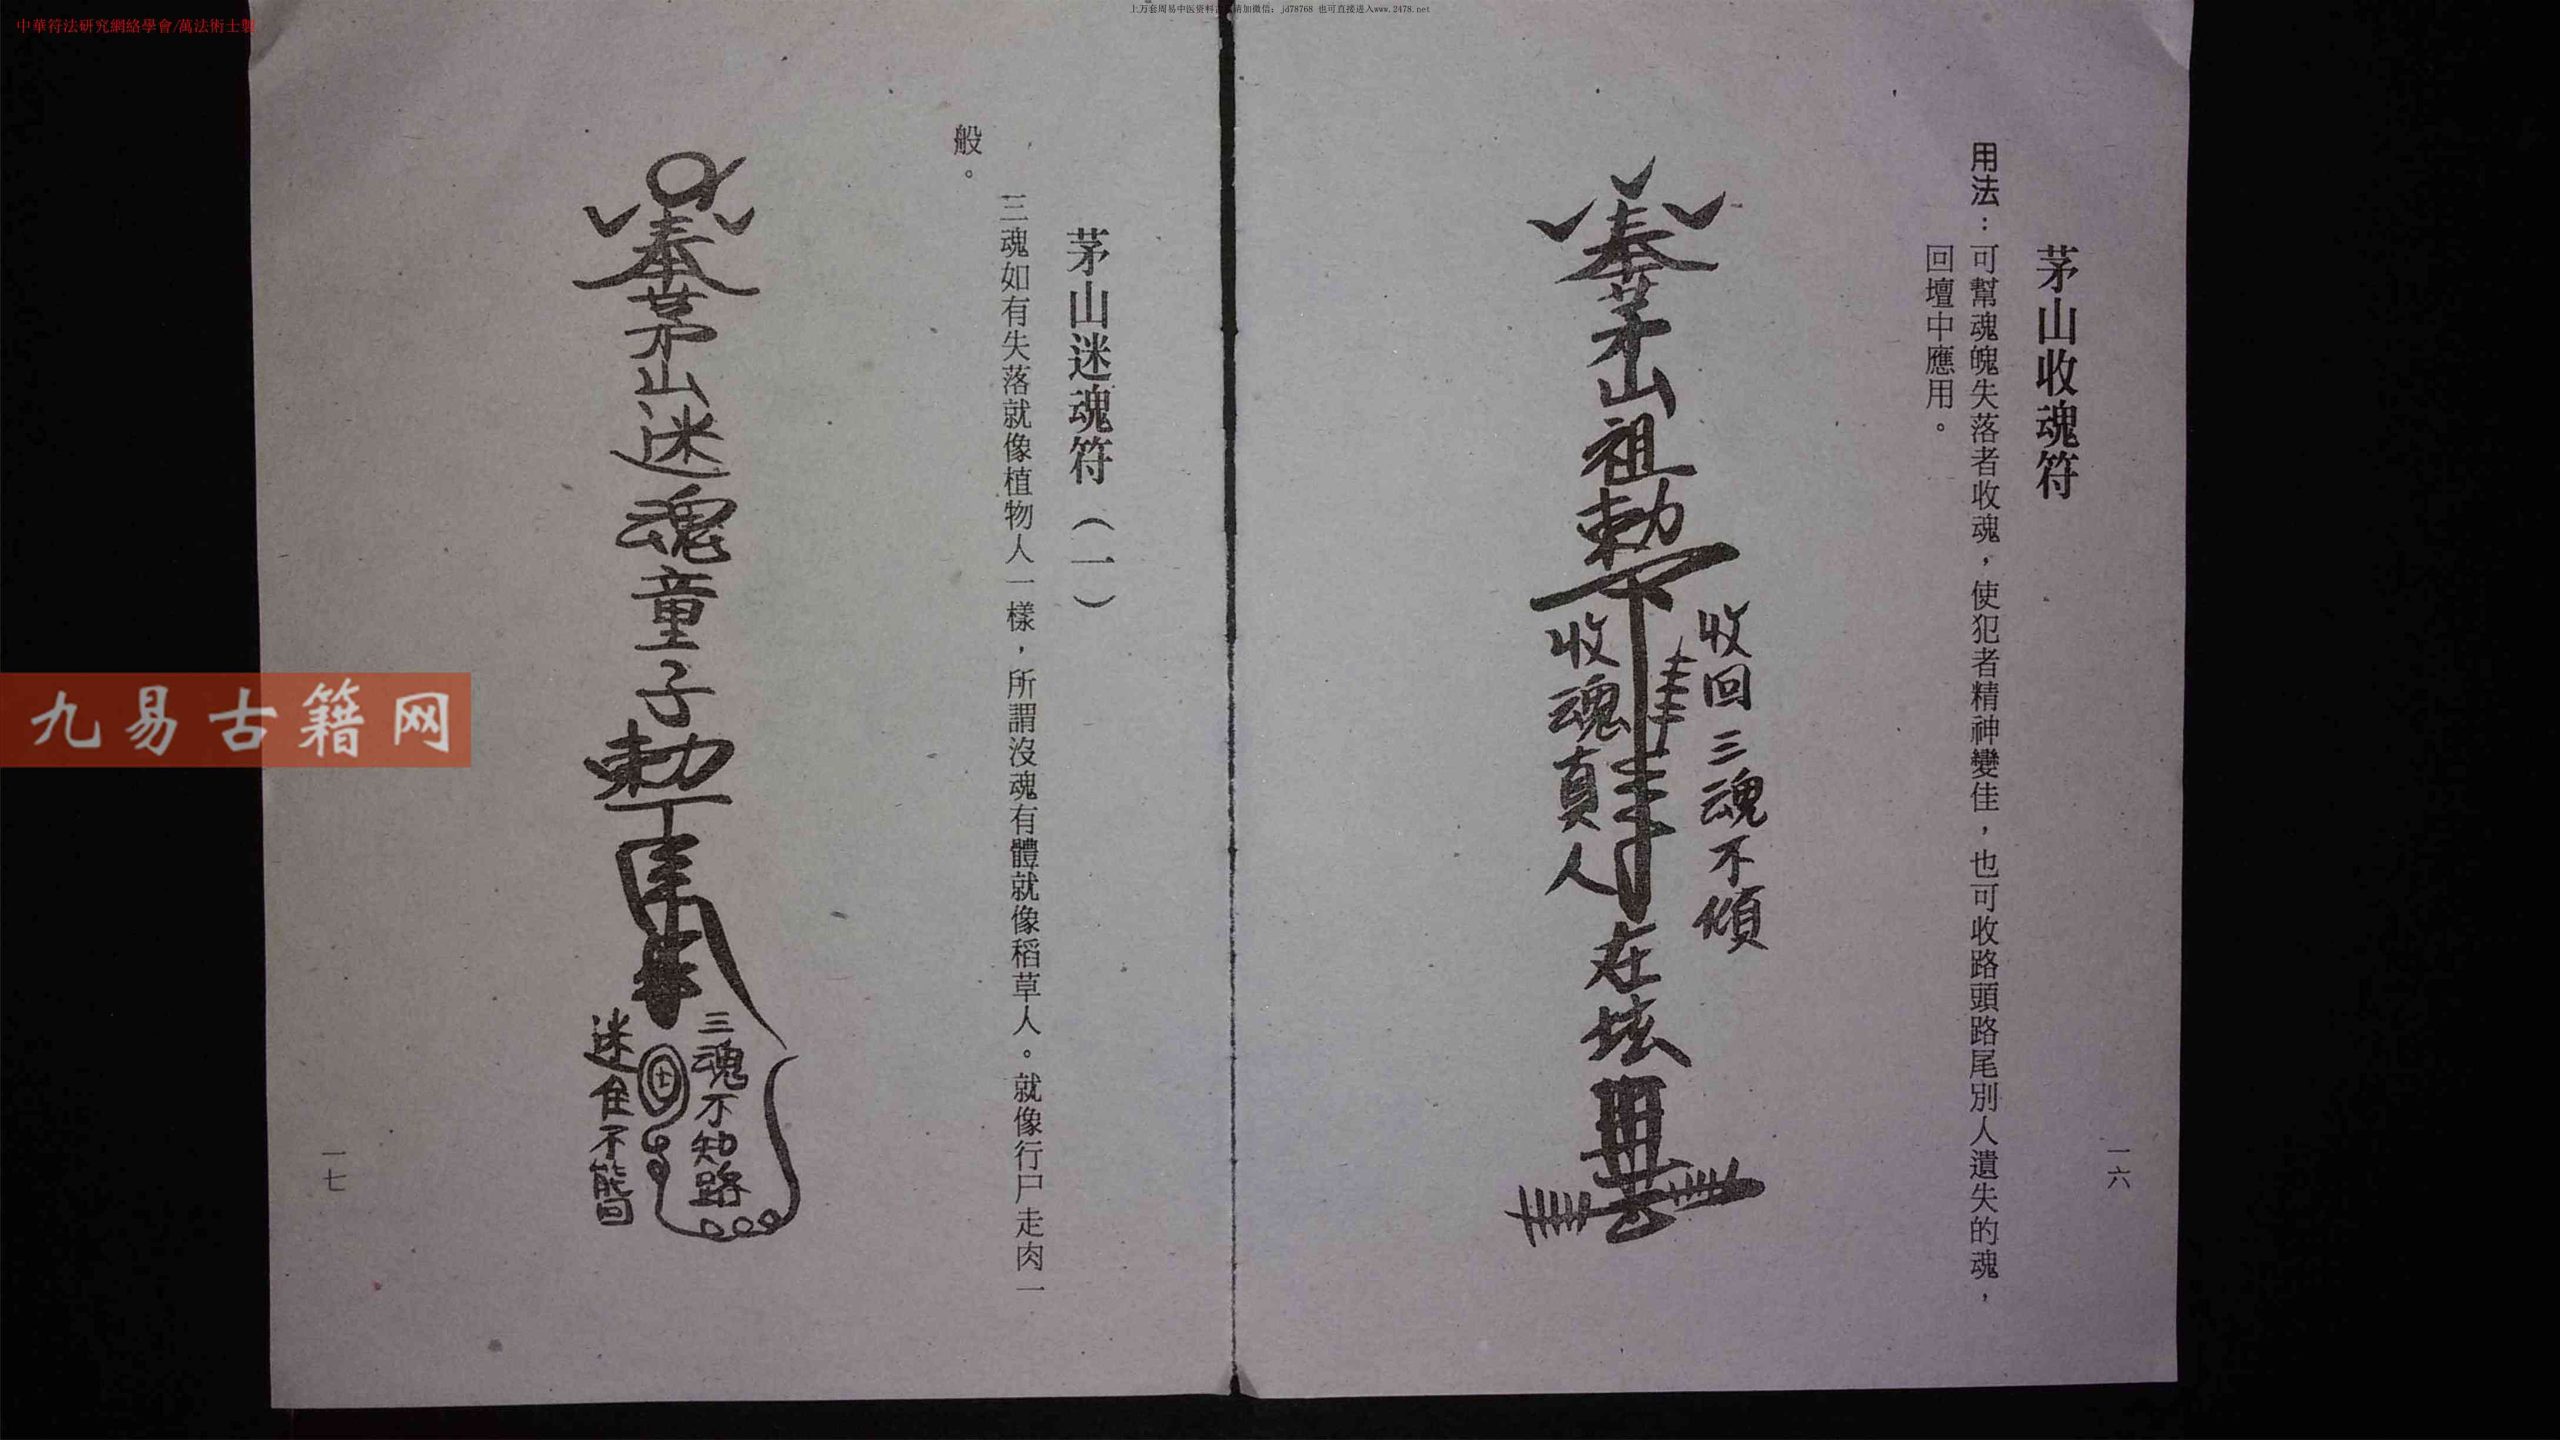 中華符法研究網絡學會/萬法術士製
jd78768 也可直接进入www.2478.net
一六
茅山收魂符
用法：可幫魂魄失落者收魂，使犯者精神變佳，也可收路頭路尾別人遺失的魂，
回壇中應用。
奉茅山祖勅下
收回三魂不傾
收魂真人
在坛
茅山迷魂符（一）
三魂如有失落就像植物人一樣，所謂沒魂有體就像稻草人。就像行尸走肉一
般。
奉茅山迷魂童子勅下
三魂不知路
迷住不能回
一七
九易古籍网